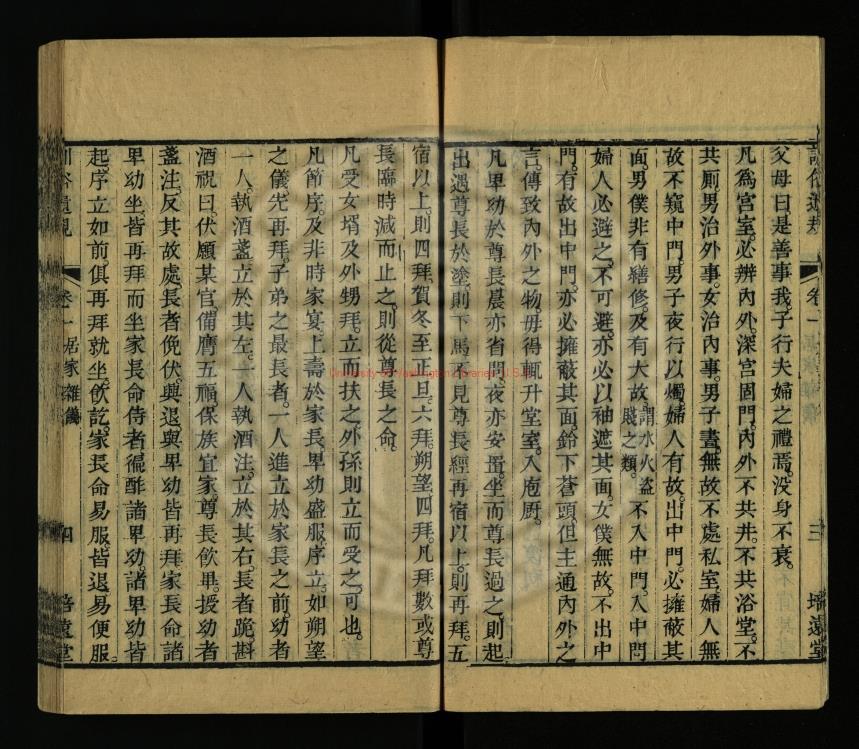 父母曰是善事我子行夫婦之禮焉沒身不衰
凡爲宮室必辨內外深宮固門內外不共井不共浴堂不
共厠男治外事女治內事男子晝無故不處私室婦人無
故不窺中門男子夜行以燭婦人有故出中門必擁蔽其
面男僕非有繕修及有大故謂水火盜賊之類不入中門入中門
婦人必避之不可避亦必以袖遮其面女僕無故不出中
門有故出中門亦必擁蔽其面鈴下蒼頭但主通內外之
言傳致內外之物毋得輒升堂室入庖厨
凡卑幼於尊長晨亦省問夜亦安置坐而尊長過之則起
出遇尊長於塗則下馬不見尊長經再宿以上則再拜五
宿以上則四拜賀冬至正旦六拜朔望四拜凡拜數或尊
長臨時減而止之則從尊長之命
凡受女壻及外甥拜立而扶之外孫則立而受之可也
凡節序及非時家宴上壽於家長卑幼盛服序立如朔望
之儀先再拜子弟之最長者一人進立於家長之前幼者
一人執酒盞立於其左一人執酒注立於其右長者跪斟
酒祝曰伏願某官備膺五福保族宜家尊長飮畢授幼者
盞注反其故處長者俛伏興退與卑幼皆再拜家長命諸
卑幼坐皆再拜而坐家長命侍者徧酢諸卑幼諸卑幼皆
起序立如前俱再拜就坐飮訖家長命易服皆退易便服
訓俗遺規 卷一 居家雜儀 三 培遠堂
訓俗遺規 卷一 居家雜儀 四 培遠堂